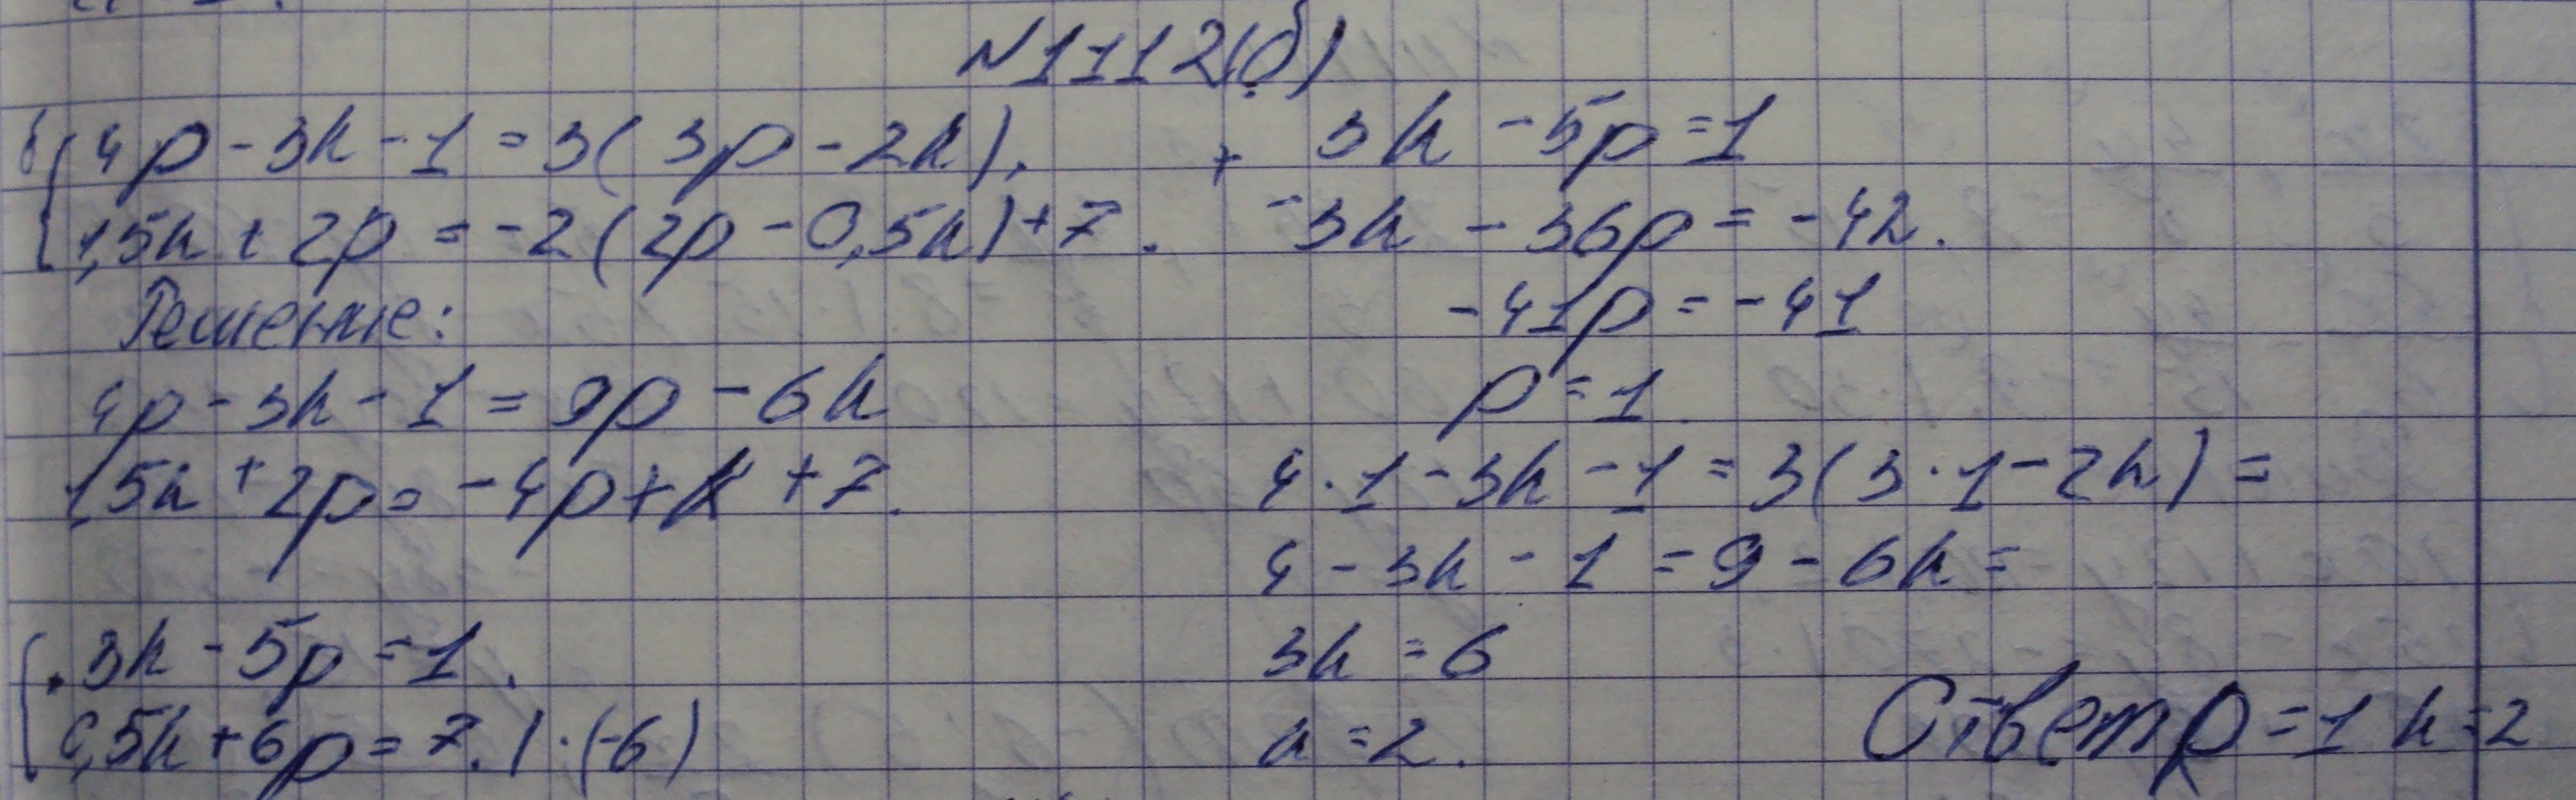 N1112(б)
б) 4p - 3k - 1 = 3(3p - 2k).
1,5k + 2p = -2(2p - 0,5k) + 7.
Решение:
4p - 3k - 1 = 9p - 6k
1,5k + 2p = -4p + k + 7.
3k - 5p = 1.
0,5k + 6p = 7. | · (-6)
+ 3k - 5p = 1
-3k - 36p = -42.
-41p = -41
p = 1
4 · 1 - 3k - 1 = 3(3 · 1 - 2k) =
4 - 3k - 1 = 9 - 6k =
3k = 6
k = 2.
Ответ p = 1 k = 2